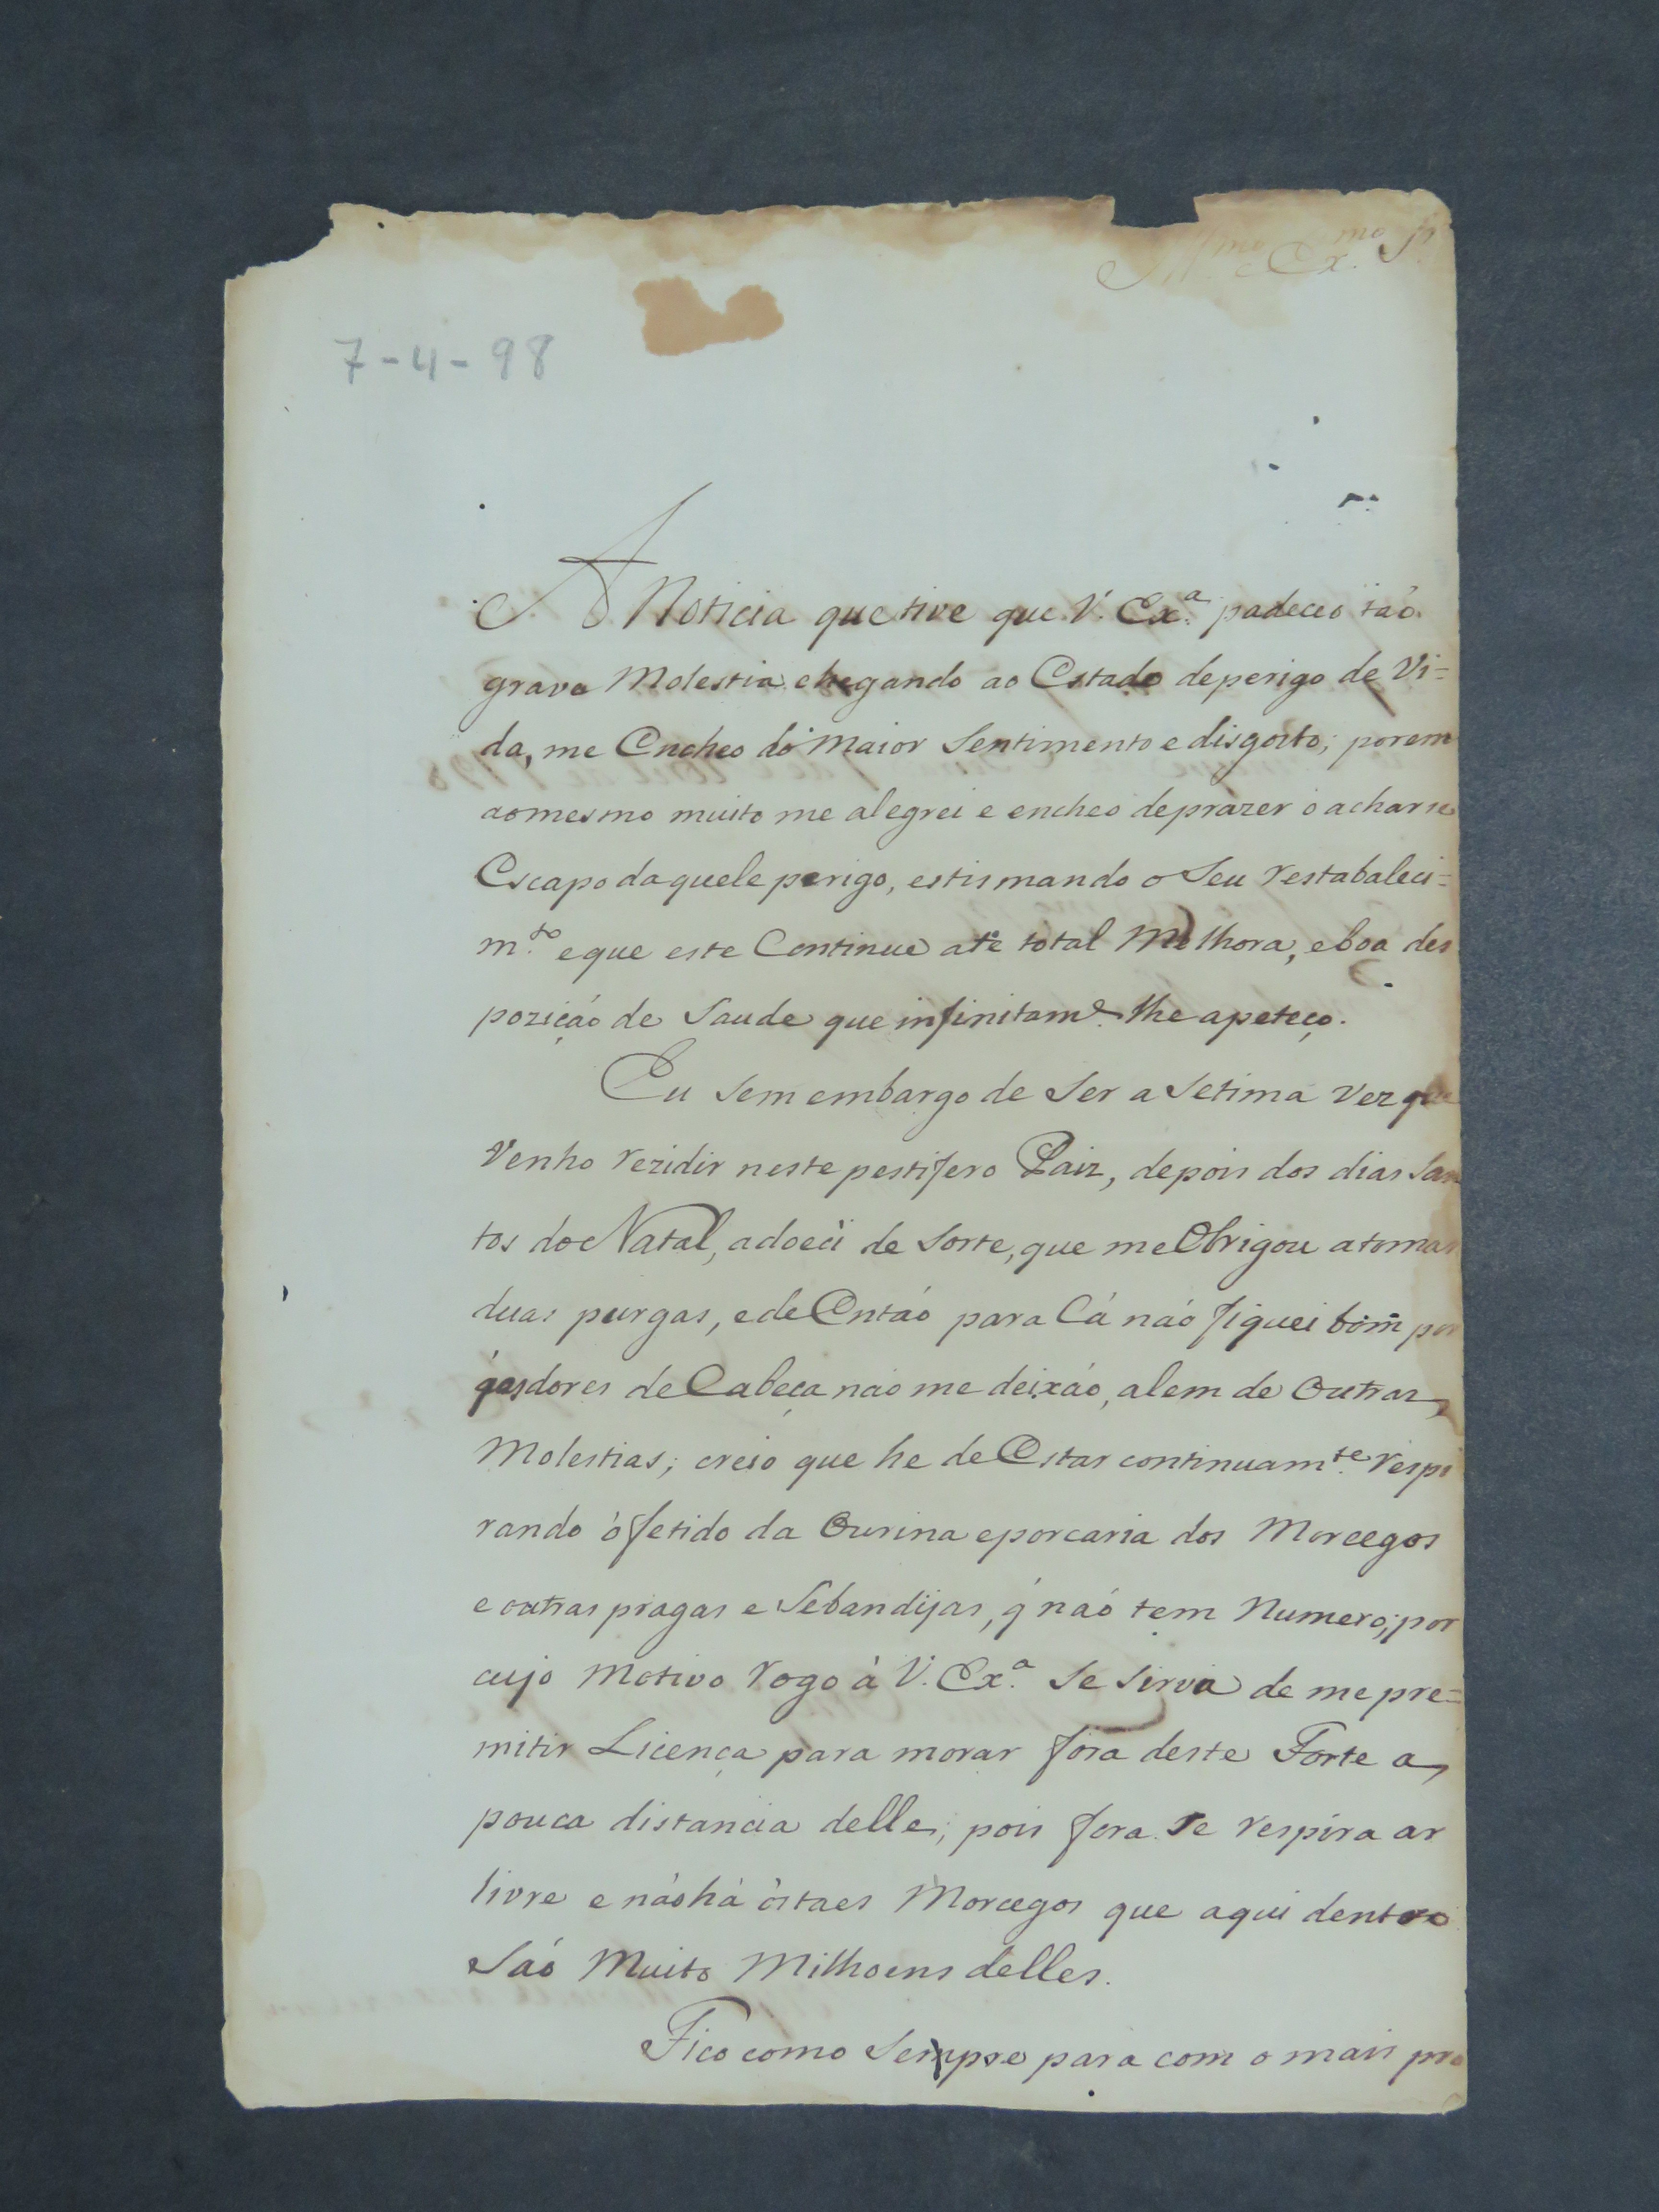 Ill.mo e Ex.mo Sr.
7-4-98
A Noticia que tive que V. Ex.a padeceo taó
grave Molestia chegando ao Estado deperigo de Vi=
da, me Encheo do Maior Sentimento e disgosto; porem
aomesmo muito me alegrei e encheo deprazer o acharse
Escapo daquele perigo, estismando o Seu restabaleci=
m.to eque este Continue até total Melhora, eboa des
poziçaó de Saude que infinitam.e lhe apeteço.
Eu Sem embargo de Ser a Setima vez que
Venho rezidir neste pestifero Paiz, depois dos dias San
tos do Natal, adoeci de Sorte, que me Obrigou atomar
duas purgas, ede Entaó para Cá naó fiquei bom por
q́ asdores de Cabeça naó me deixaó, alem de Outras
Molestias; creio que he de Estar continuam.te respi
rando ó fetido da Ourina eporcaria dos Morcegos
e outras pragas e Sebandijas, q́ naó tem Numero; por
cujo Motivo rogo à V. Ex.a Se Sirva de me pre=
mitir Licença para morar fóra deste Forte a
pouca distancia delle; pois fora Se respira ar
livre e naóhá ós taes Morcegos que aqui dentro
Saó Muito Milhoens delles.
Fico como Sempre para com o mais pro